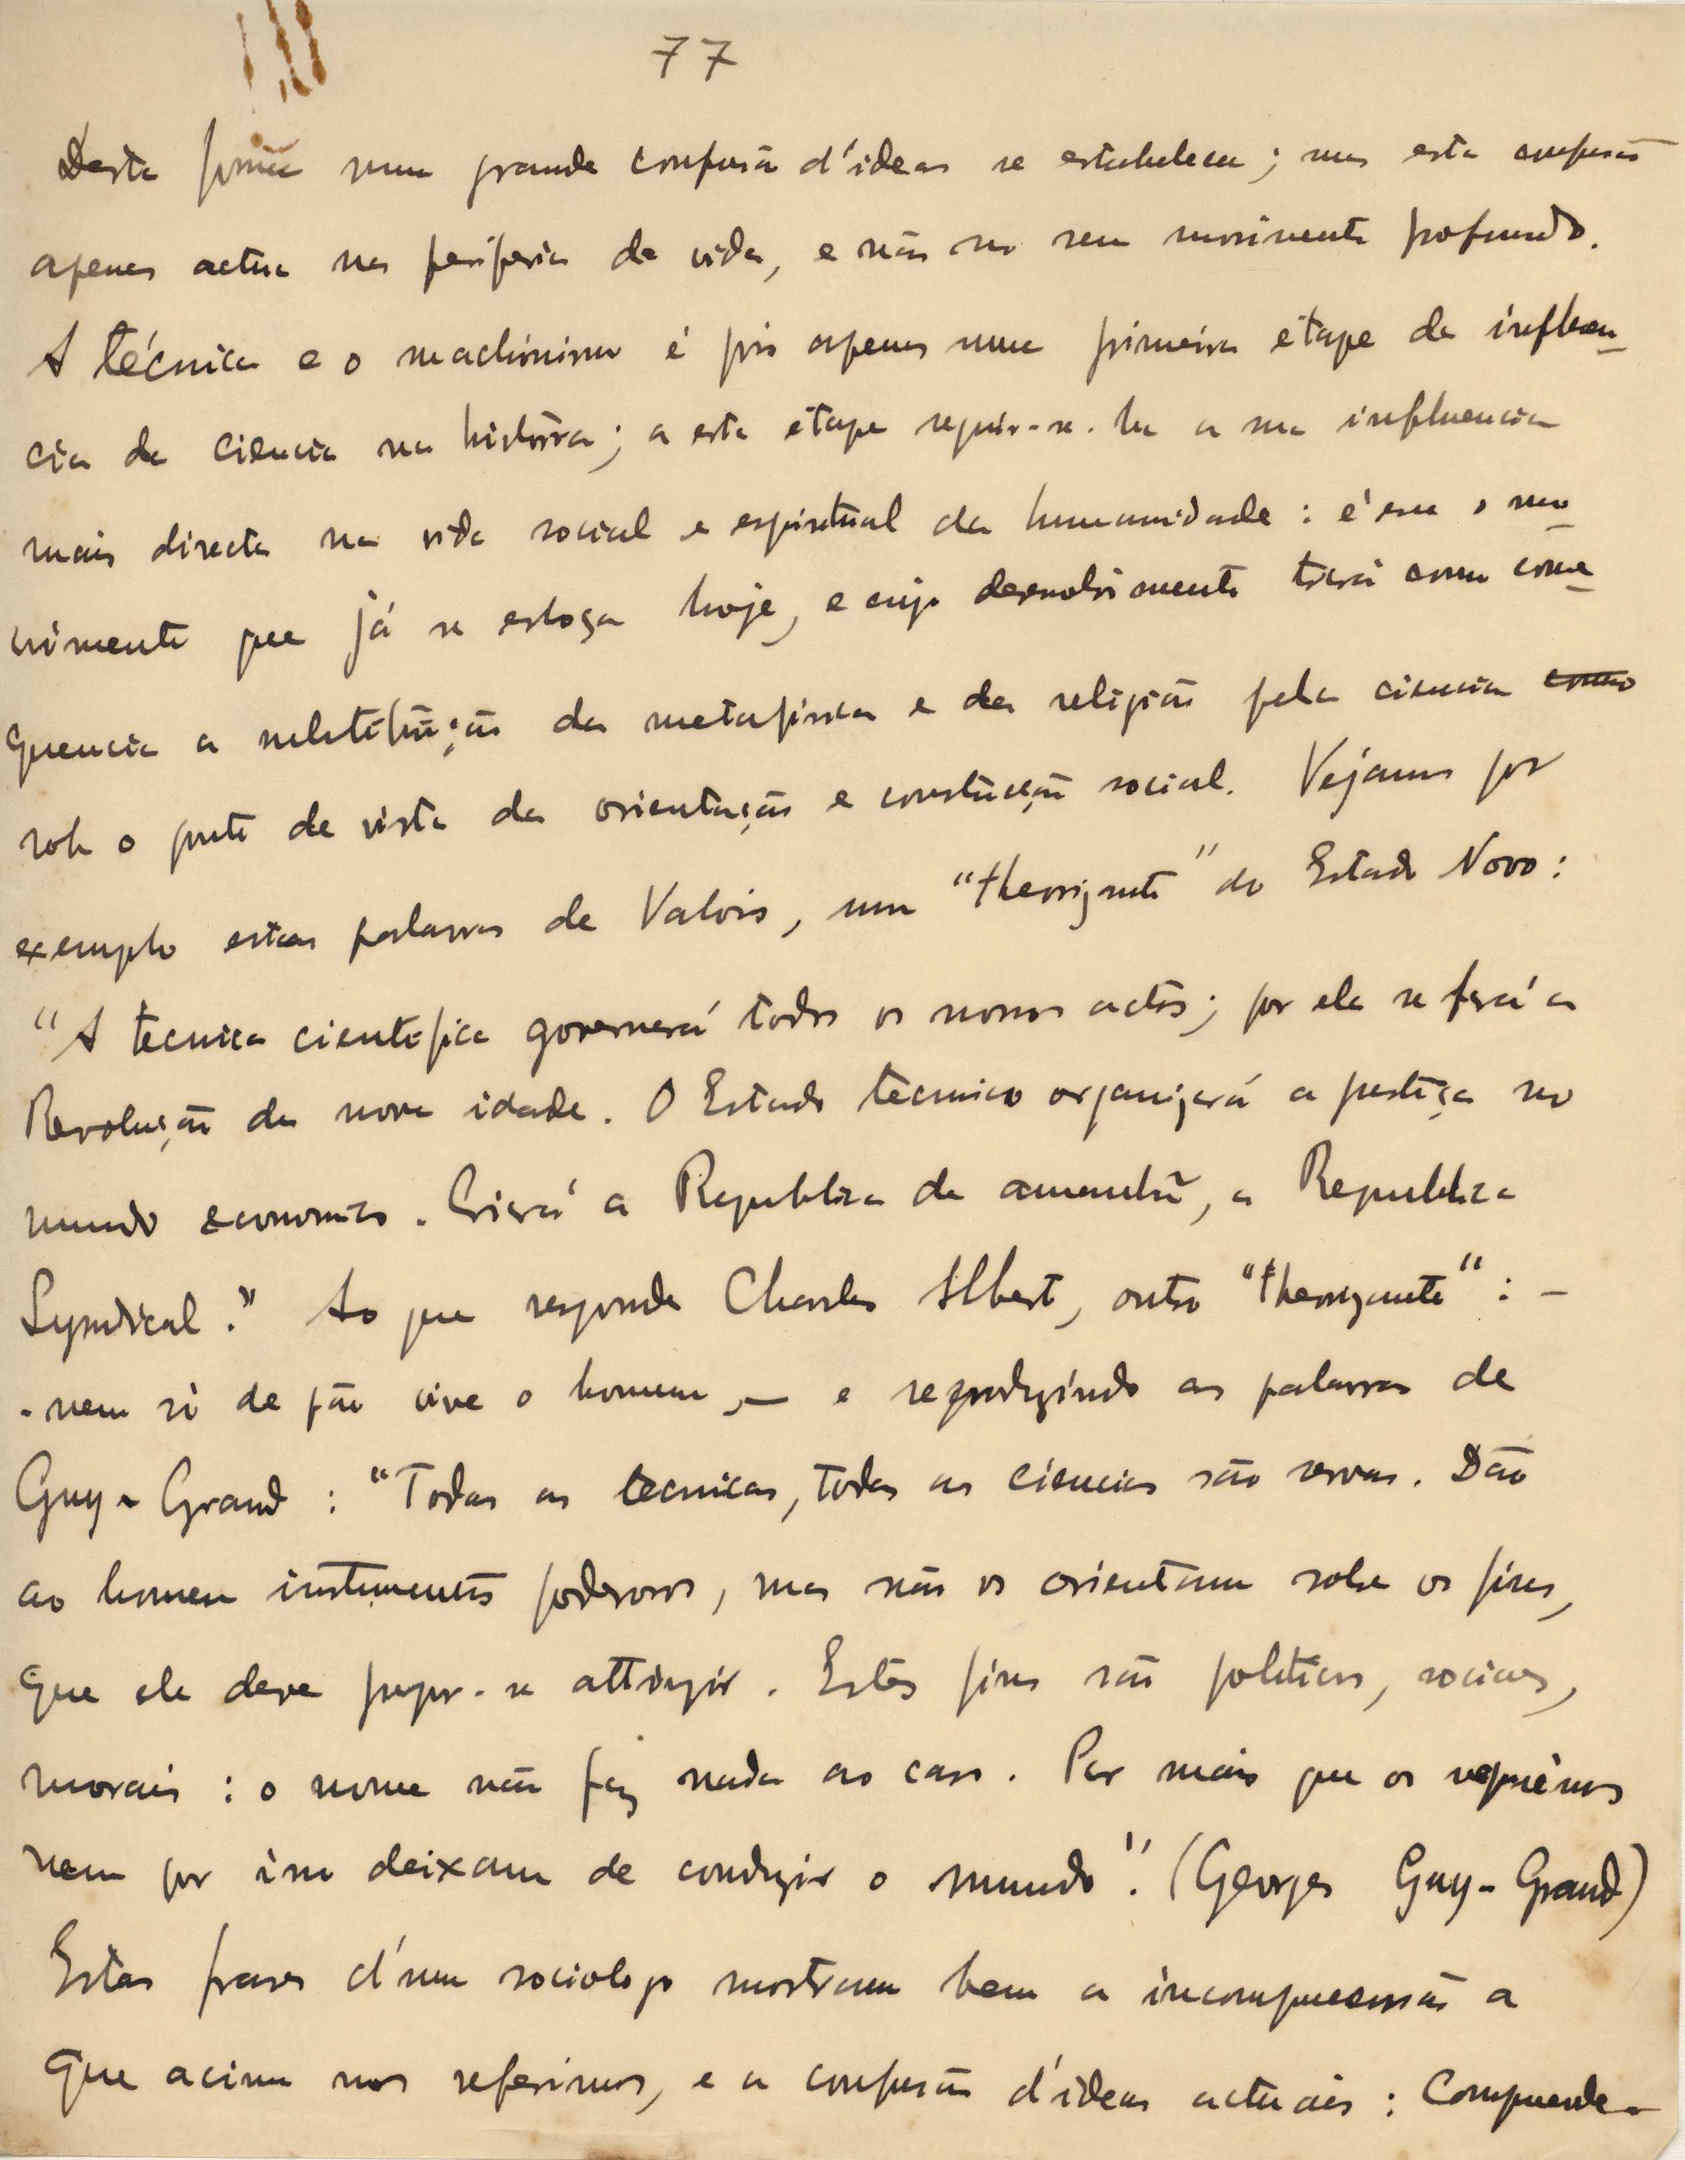 77
Desta forma uma grande confusão d'ideas se estabelece; mas esta confusão
apenas actua na periferia da vida, e não no seu movimento profundo.
A técnica e o machinismo é pois apenas uma primeira étape da influen-
cia da ciencia na história; a esta étape seguir-se-ha a sua influencia
mais directa na vida social e espiritual da humanidade: é esse o mo-
vimento que já se esboça hoje, e cujo desenvolvimento trará como conse-
quencia a substituição da metafisica e da religião pela ciencia como
sob o ponto de vista da orientação e construcção social. Vejamos por
exemplo estas palavras de Valois, um "theorizante" do Estado Novo:
"A tecnica cientifica governará todos os nossos actos; por ela se fará a
Revolução da nova idade. O Estado tecnico organizará a justiça no
mundo economico. Criará a Republica de amanhã, a Republica
Syndical." Ao que responde Charles Albert, outro "theorizante": -
- nem só de pão vive o homem, — e reproduzindo as palavras de
Guy-Grand: "Todas as tecnicas, todas as ciencias são servas. Dão
ao homem instrumentos poderosos, mas não os orientam sobre os fins,
que ele deve propor-se attingir. Estes fins são politicos, sociaes,
morais: o nome não faz nada ao caso. Por mais que os
nem por isso deixam de conduzir o mundo". (Georges Guy-Grand)
Estas frases d'um sociologo mostram bem a incompreensão a
que acima nos referimos, e a confusão d'ideas actuais: Comprende-